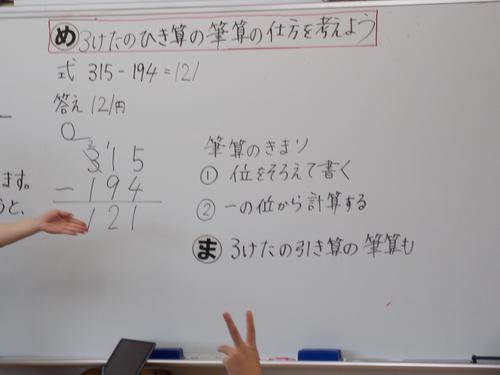 め 3けたのひき算の筆算の仕方を考えよう
式 315-194=121
答え 121円
2 1
315
-194
121
筆算のきまり
① 位をそろえて書く
② 一の位から計算する
ま 3けたの引き算の筆算も
ます。
うと、